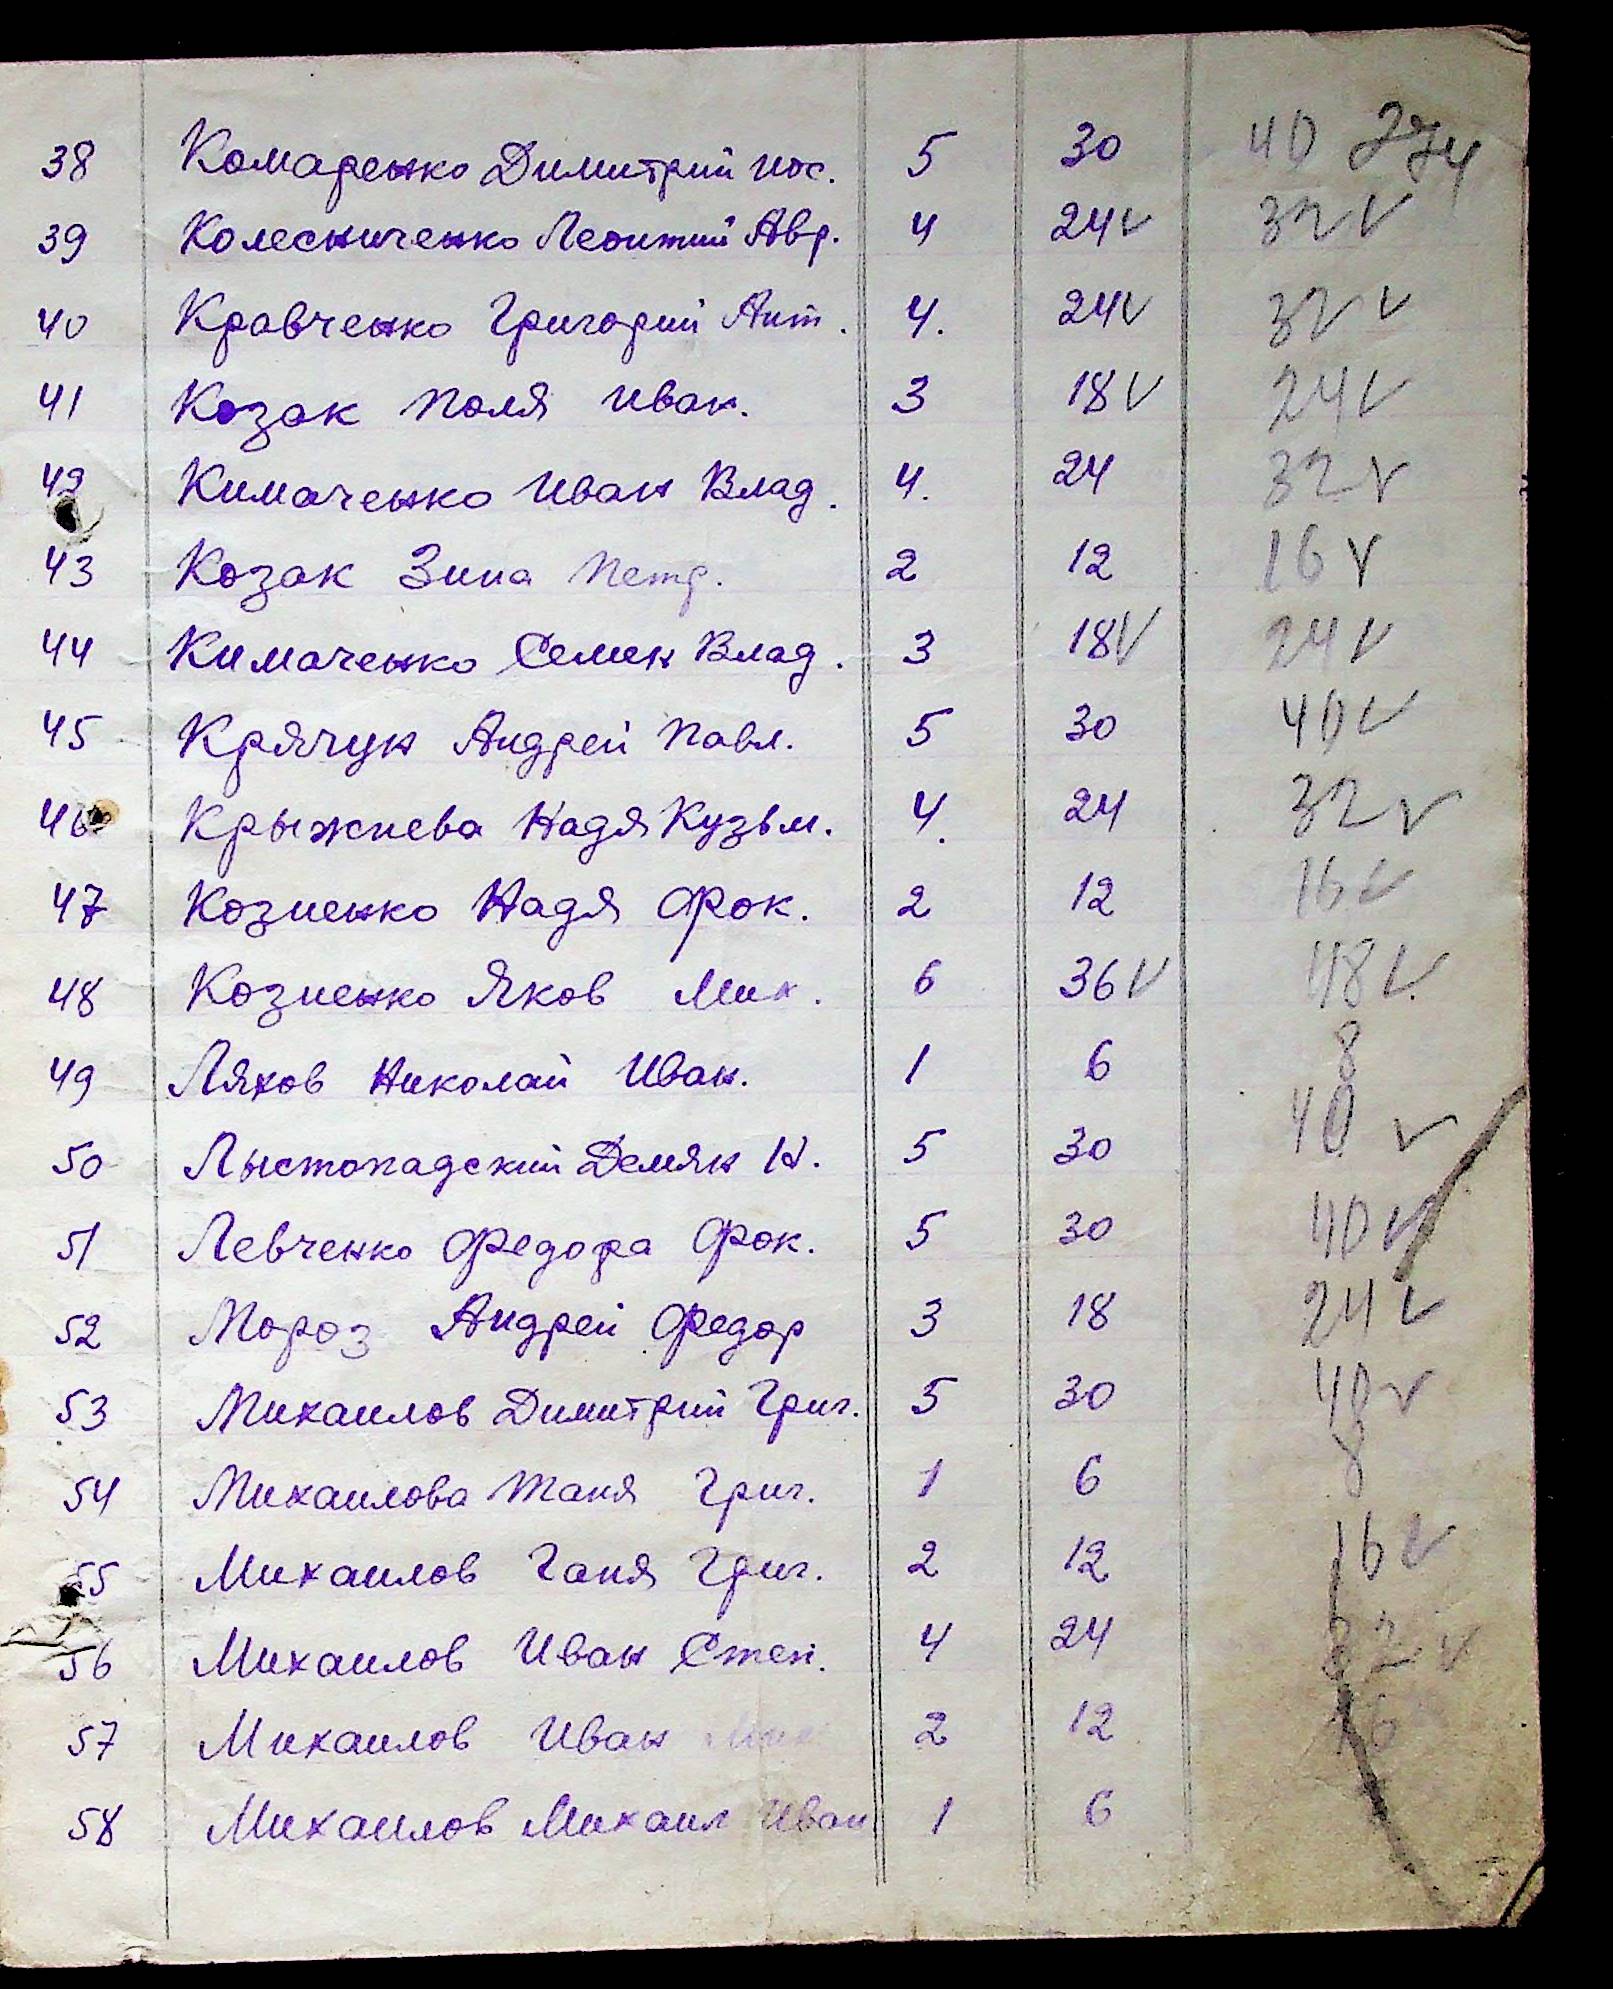 38 Комаренко Димитрий иос. 5 30 40 274
39 Колесниченко Леонтий Авр. 4 24 V 32 V
40 Кравченко Григорий Ант. 4. 24 V 32 V
41 Козак Поля Иван. 3 18 V 24 V
42 Кимаченко Иван Влад. 4. 24 32 V
43 Козак Зина Петр. 2 12 16 V
44 Кимаченко Семен Влад. 3 18 V 24 V
45 Крячун Андрей Павл. 5 30 40 V
46 Крыжнева Надя Кузьм. 4. 24 32 V
47 Козненко Надя Фок. 2 12 16 V
48 Козненко Яков Мик. 6 36 V 48 V
49 Ляхов Николай Иван. 1 6 8
50 Лыстопадский Демян Н. 5 30 40 V
51 Левченко Федора Фок. 5 30 40 V
52 Мороз Андрей Федор 3 18 24 V
53 Михаилов Димитрий Григ. 5 30 40 V
54 Михаилова Таня Григ. 1 6 8
55 Михаилов Ганя Григ. 2 12 16 V
56 Михаилов Иван Степ. 4 24 32 V
57 Михаилов Иван 2 12 16
58 Михаилов Михаил Иван 1 6